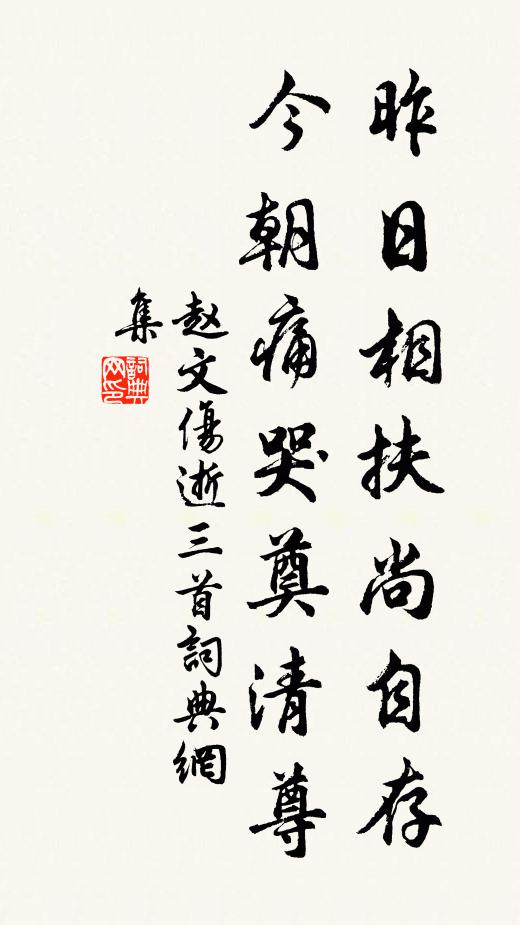 昨日相扶尚自存
今朝痛哭奠清尊
赵文傷逝三首詞典網
集
詞典
网印